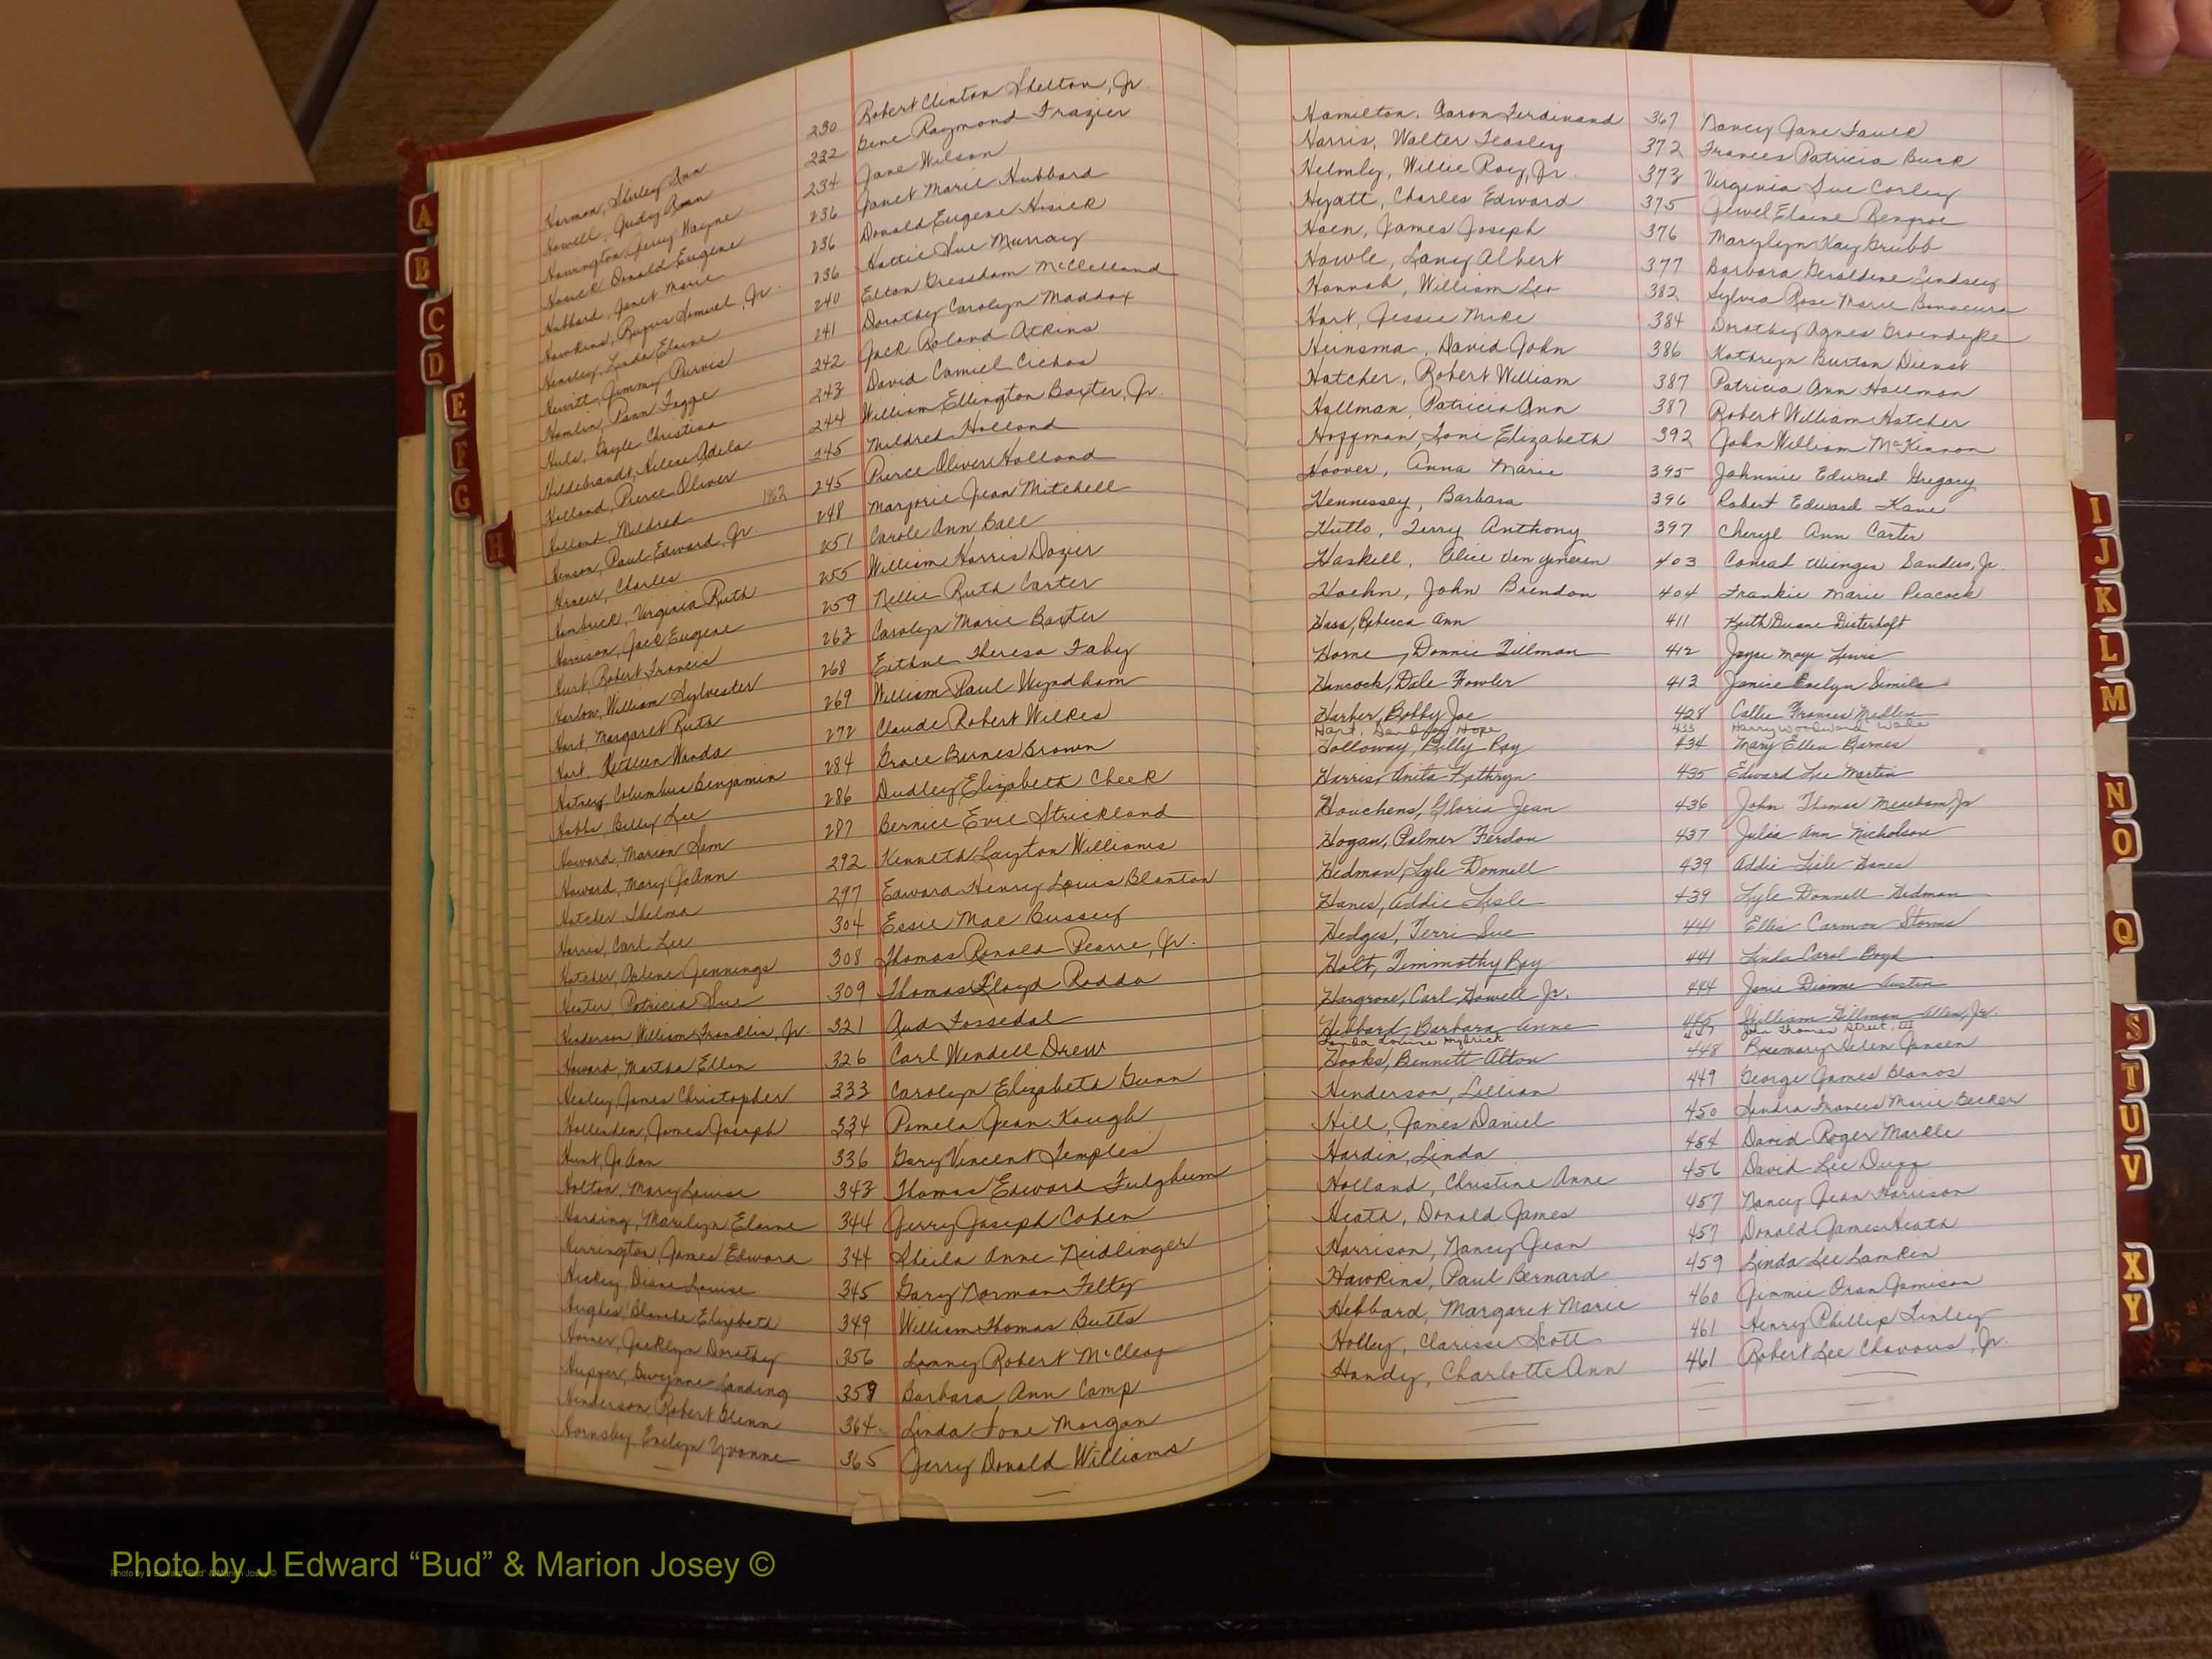 Harmon, Shirley Ann 230 Robert Clinton Shelton, Jr.
Howell, Judy Ann 232 Gene Raymond Frazier
Harrington, Jerry Wayne 234 Jane Wilson
Hosick Donald Eugene 236 Janet Marie Hubbard
Hubbard, Janet Marie 236 Donald Eugene Hosick
Hawkins, Rufus Samuel, Jr. 236 Hattie Sue Murray
Hensley, Linda Elaine 240 Elton Gressham McClelland
Hewitt, Jimmy Purvis 241 Dorothy Carolyn Maddox
Hamlin, Penn 242 Jack Roland Atkins
Gayle Christina 243 David Camiel Cichos
Hildebrandt, Adela 244 William Ellington Baxter, Jr.
Holland, Pierce Oliver 245 Mildred Holland
Holland, Mildred 1962 245 Pierce Oliver Holland
Henson, Paul Edward, Jr. 248 Marjorie Jean Mitchell
Charles 251 Carole Ann Ball
Hambrick, Virginia Ruth 255 William Harris Dozier
Harrison, Jack Eugene 259 Nellie Ruth Carter
Hurt, Robert Francis 263 Carolyn Marie Baxter
Harlow, William Sylvester 268 Eithne Theresa Fahy
Hart, Margaret Ruth 269 William Paul Wyndham
Hart, Wanda 272 Claude Robert Wilkes
Columbus Benjamin 284 Grace Burnes Brown
Hobbs, Billy Lee 286 Dudley Elizabeth Cheek
Howard, Marion Sam 287 Bernice Evie Strickland
Howard, Mary JoAnn 292 Kenneth Layton Williams
Hatcher Thelma 297 Edward Henry Louis Blanton
Harris, Carl Lee 304 Essie Mae Bussey
Hatcher, Arlene Jennings 308 Thomas Ronald Pearre, Jr.
Hester Patricia Sue 309 Thomas Floyd Rodda
Henderson, William Franklin, Jr. 321 Aud Fossedal
Howard, Martha Ellen 326 Carl Wendell Drew
Healey, James Christopher 333 Carolyn Elizabeth Gunn
Hollenden, James Joseph 334 Pamela Jean Keough
Hunt, Jo Ann 336 Gary Vincent Temples
Holton, Mary Louise 343 Thomas Edward Fulghum
Harding, Marilyn Elaine 344 Jerry Joseph Cohen
Herrington, James Edward 344 Sheila Anne Neidlinger
Hickey, Diane Louise 345 Gary Norman Felty
Hughes, Blanche Elizabeth 349 William Thomas Butts
Horner, Jacklyn Dorothy 356 Lonny Robert McCleaf
Hupper, Gwynne Landing 358 Barbara Ann Camp
Henderson, Robert Glenn 364 Linda Ione Morgan
Hornsby Evelyn Yvonne 365 Jerry Donald Williams
Hamilton, Aaron Ferdinand 367 Nancy Jane Faulk
Harris, Walter Teasley 372 Frances Patricia Buck
Helmly, Willie Roy, Jr. 373 Virginia Sue Corley
Hyatt, Charles Edward 375 Jewel Elaine Rengroe
Haen, James Joseph 376 Marylyn Kay Grubb
Howle, Lany Albert 377 Barbara Geraldine Lindsey
Hannah, William Leo 382 Sylvia Rose Marie
Hart, Jessie Mike 384 Dorothy Agnes Groendyke
Heinsma, David John 386 Kathryn Burton Dienst
Hatcher, Robert William 387 Patricia Ann Hallman
Hallman, Patricia Ann 387 Robert William Hatcher
Hoffman, Toni Elizabeth 392 John William McKinnon
Hoover, Anna Marie 395 Johnnie Edward Gregory
Hennessey, Barbara 396 Robert Edward Kane
Hutto, Terry Anthony 397 Cheryl Ann Carter
Haskell, Alice 403 Conrad Wienges Sanders, Jr.
Hoehn, John Brendon 404 Frankie Marie Peacock
Hass, Rebecca Ann 411 Keith Duane Disterhaft
Horne, Donnie Tillman 412 Joyce Maye Lewis
Hancock, Dale Fowler 413 Janice Evelyn Simila
Harber, Bobby Joe 428 Callie Frances Medlin
Hart, Sandra Hope 433 Harry Woodward Wade
Holloway, Billy Ray 434 Mary Ellen Barnes
Harris, Anita Kathryn 435 Edward Lee Martin
Houchens, Gloria Jean 436 John Thomas Meacham, Jr
Hogan, Palmer Ferdon 437 Julia Ann Nicholson
Hedman, Lyle Donnell 439 Addie Lisle Hanes
Hanes, Addie Lisle 439 Lyle Donnell Hedman
Hedges, Terri Sue 441 Ellis Carmon Storms
Holt, Timmothy Ray 441 Linda Carol Boyd
Hargrove, Carl Howell Jr. 444 Janie Dianne Austin
Hibbard, Barbara Anne 445 William Tillman Allen, Jr.
Linda Louise Hydrick 447 John Thomas Street, III
Hooks, Bennett Alton 448 Rosemary Helen Jansen
Henderson, Lillian 449 George James Blanos
Hill, James Daniel 450 Sandra Frances Marie Becker
Hardin, Linda 454 David Roger Markle
Holland, Christine Anne 456 David Lee Dugg
Heath, Donald James 457 Nancy Jean Harrison
Harrison, Nancy Jean 457 Donald James Heath
Hawkins, Paul Bernard 459 Linda Lee Lamkin
Hibbard, Margaret Marie 460 Jimmie Oran Jamison
Holley, Clarisse Scott 461 Henry Phillip Finley
Handy, Charlotte Ann 461 Robert Lee Chavous, Jr.
A
B
C
D
E
F
G
H
I
J
K
L
M
N
O
Q
S
T
U
V
X
Y
Photo by J Edward “Bud” & Marion Josey ©
Photo by J Edward “Bud” & Marion Josey ©